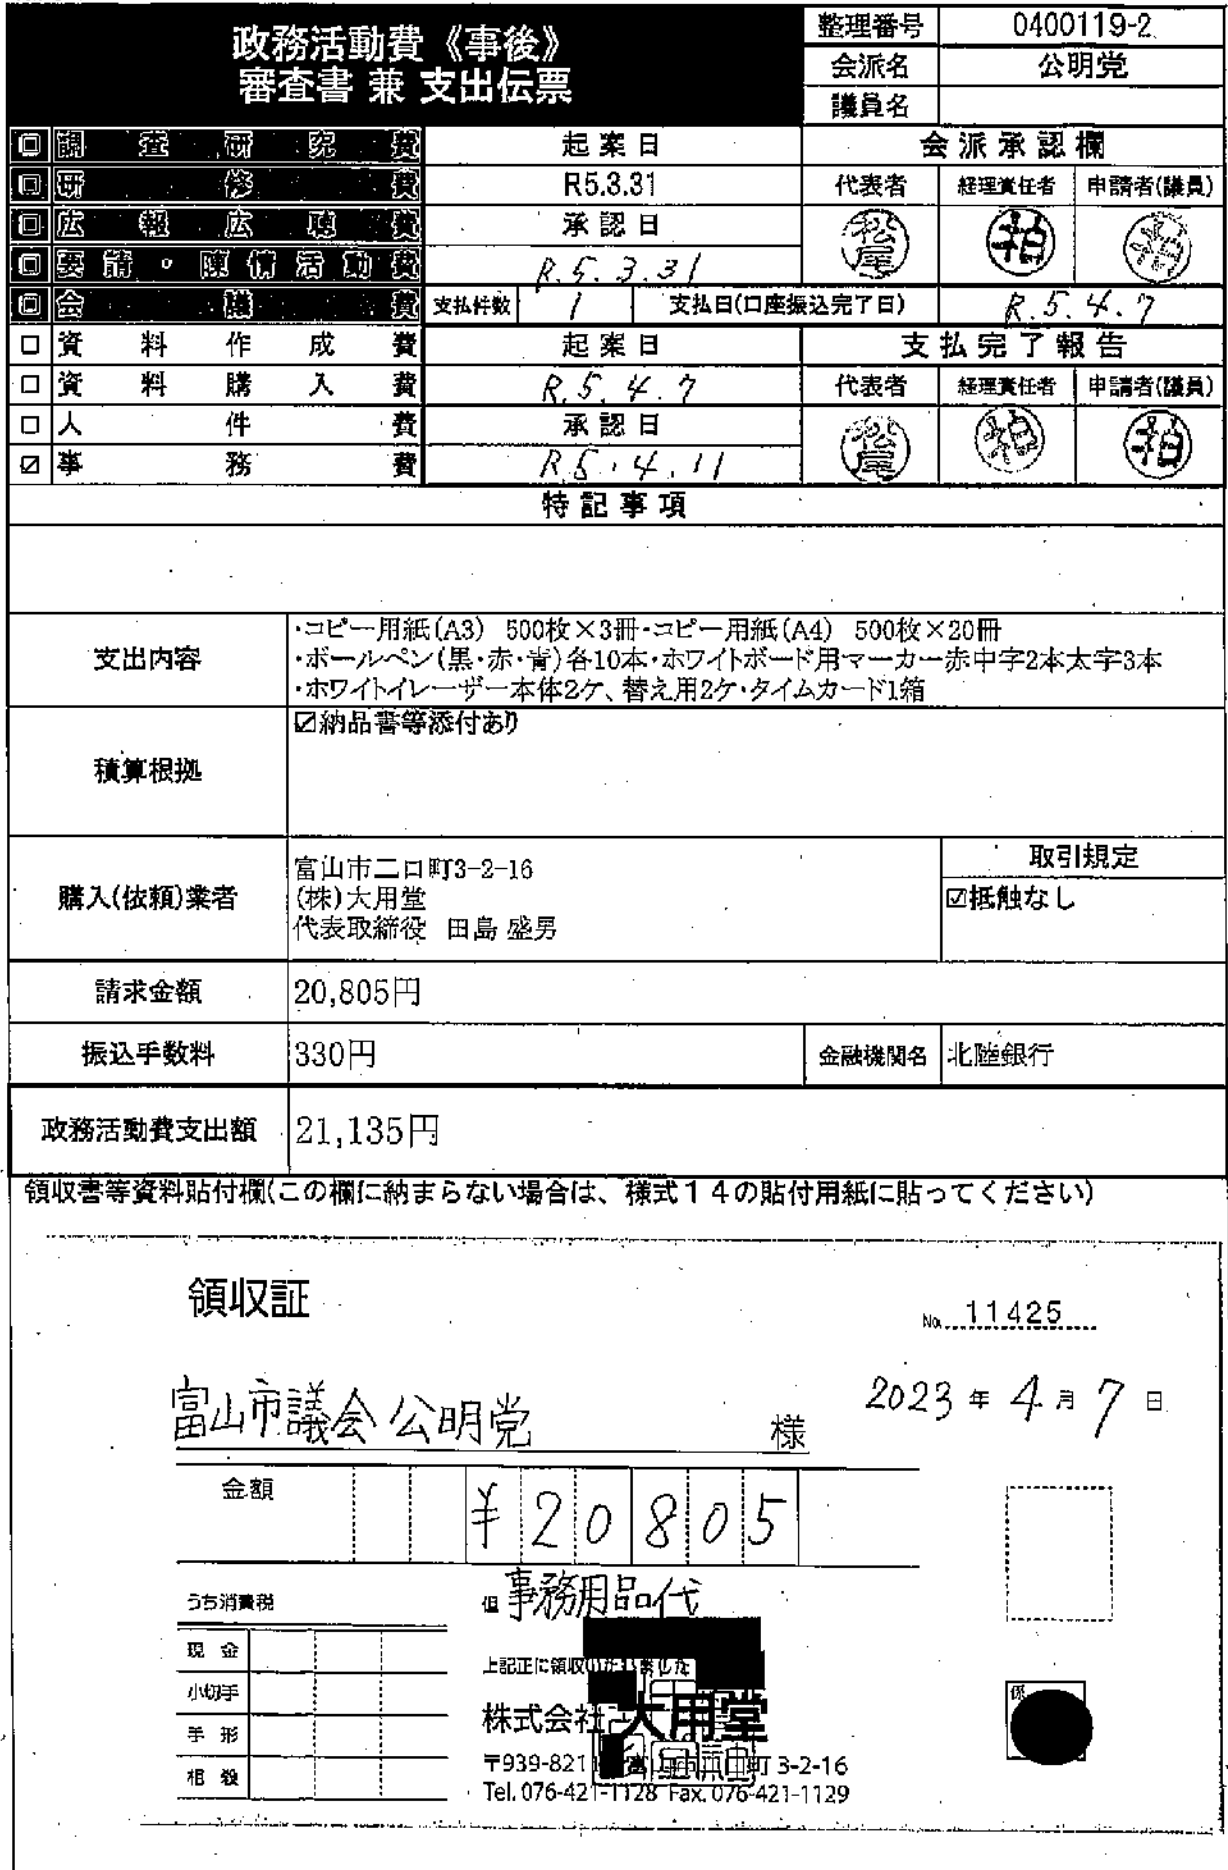 政務活動費《事後》
審査書 兼 支出伝票
整理番号 0400119-2
会派名 公明党
議員名
調査研究費
研修費
広報広聴費
要請・陳情活動費
会議費
□ 資料作成費
□ 資料購入費
□ 人件費
☑ 事務費
起案日
R5.3.31
承認日
R.5.3.31
支払件数 1 支払日(口座振込完了日) R.5.4.7
会派承認欄
代表者 経理責任者 申請者(議員)
松尾 柏 柏
起案日
R.5.4.7
承認日
R.5.4.11
支払完了報告
代表者 経理責任者 申請者(議員)
松尾 柏 柏
特記事項
支出内容
・コピー用紙(A3) 500枚×3冊・コピー用紙(A4) 500枚×20冊
・ボールペン(黒・赤・青)各10本・ホワイトボード用マーカー赤中字2本太字3本
・ホワイトイレーザー本体2ケ、替え用2ケ・タイムカード1箱
積算根拠
☑納品書等添付あり
購入(依頼)業者
富山市二口町3-2-16
(株)大用堂
代表取締役 田島 盛男
取引規定
☑抵触なし
請求金額 20,805円
振込手数料 330円 金融機関名 北陸銀行
政務活動費支出額 21,135円
領収書等資料貼付欄(この欄に納まらない場合は、様式14の貼付用紙に貼ってください)
領収証
No. 11425
2023年4月7日
富山市議会 公明党 様
金額 ¥20805
うち消費税
但 事務用品代
現金
小切手
手形
相殺
上記正に領収いたしました
株式会社 大用堂
〒939-821 3-2-16
Tel. 076-421-1128 Fax. 076-421-1129
係